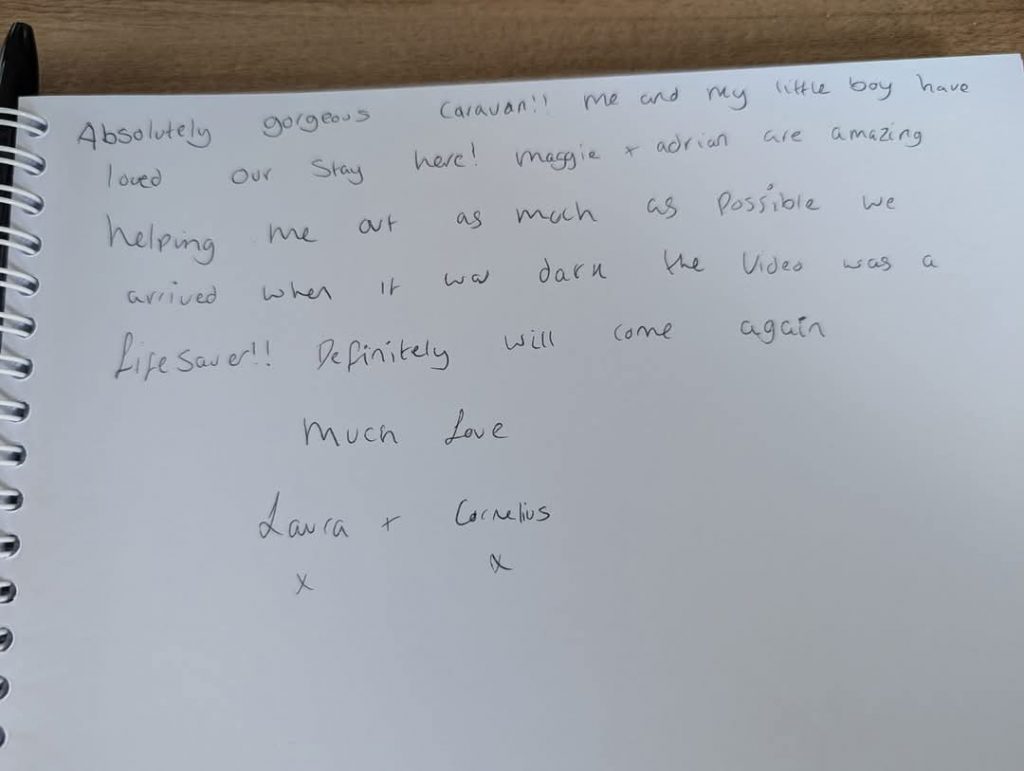 Absolutely gorgeous Caravan!! me and my little boy have
loved our Stay here! maggie + adrian are amazing
helping me out as much as Possible we
arrived when it was dark the Video was a
Lifesaver!! Definitely will come again
Much Love
Laura + Cornelius
x x